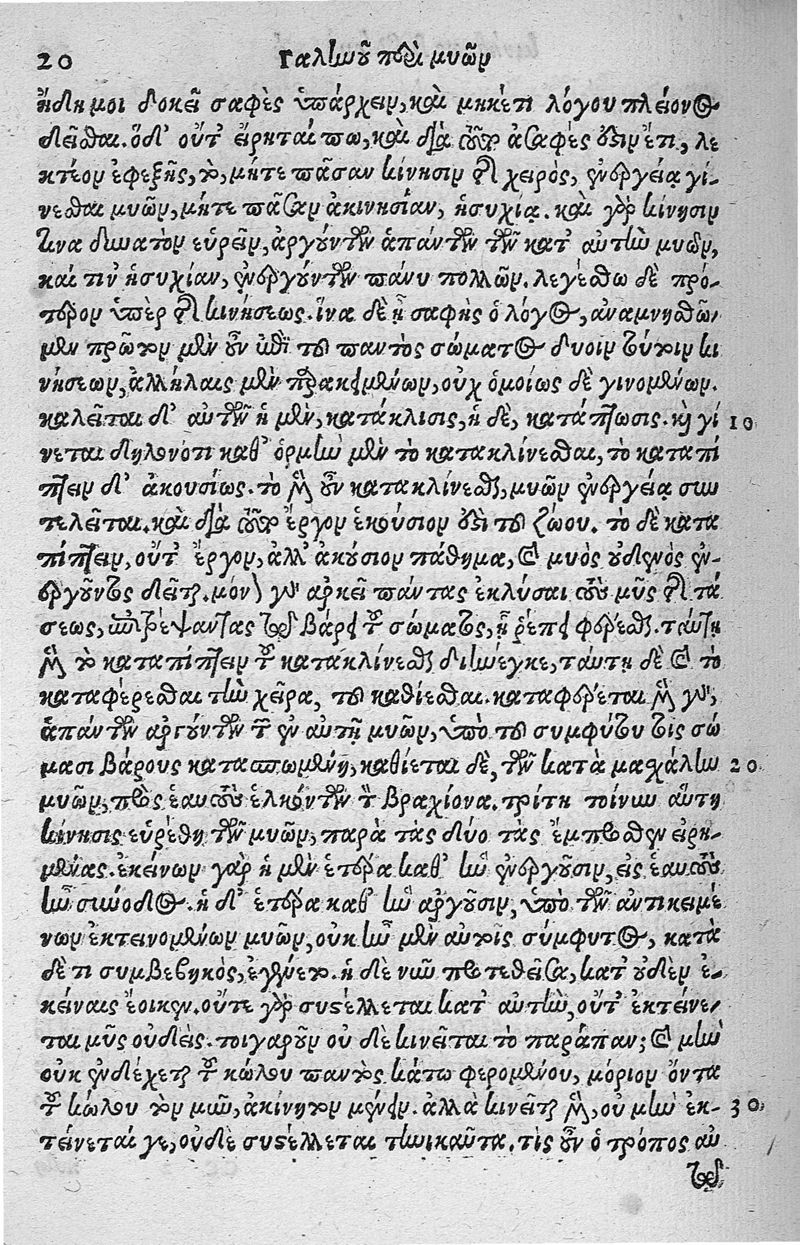 20 Γαληνοῦ περὶ μυῶν
ἤδη μοι δοκεῖ σαφὲς ὑπάρχειν, καὶ μηκέτι λόγου πλείονος
δεῖσθαι. ὃ δ' οὔτ' εἴρηταί πω, καὶ διὰ τοῦτο ἀσαφές ἐστιν ἔτι, λε
κτέον ἐφεξῆς, τὸ, μήτε πᾶσαν κίνησιν τῆς χειρὸς, ἐνεργείᾳ γί-
νεσθαι μυῶν, μήτε πᾶσαν ἀκινησίαν, ἡσυχίᾳ. καὶ γὰρ κίνησιν
τινα δυνατὸν εὑρεῖν, ἀργούντων ἁπάντων τῶν κατ' αὐτὴν μυῶν,
καί τιν' ἡσυχίαν, ἐνεργούντων πάνυ πολλῶν. λεγέσθω δὲ πρό-
τερον ὑπὲρ τῆς κινήσεως. ἵνα δὲ ᾖ σαφὴς ὁ λόγος, ἀναμνησθῶ-
μεν πρῶτον μὲν οὖν ἐπὶ τοῦ παντὸς σώματος δυοῖν τούτοιν κι
νήσεων, ἀλλήλαις μὲν παρακειμένων, οὐχ ὁμοίως δὲ γινομένων.
καλεῖται δ' αὐτῶν ἡ μὲν, κατάκλισις, ἡ δὲ, κατάπτωσις. καὶ γί 10
νεται δηλονότι καθ' ὁρμὴν μὲν τὸ κατακλίνεσθαι, τὸ καταπί
πτειν δ' ἀκουσίως. τὸ μὲν οὖν κατακλίνεσθαι, μυῶν ἐνεργείᾳ συν
τελεῖται. καὶ διὰ τοῦτο ἔργον ἑκούσιον ἐστὶ τοῦ ζώου. τὸ δὲ κατα
πίπτειν, οὔτ' ἔργον, ἀλλ' ἀκούσιον πάθημα, καὶ μυὸς οὐδενὸς ἐν-
εργοῦντος δεῖται. μόνον γὰρ ἀρκεῖ πάντας ἐκλῦσαι τοὺς μῦς τῆς τά
σεως, ἐπιτρέψαντας τῷ βάρει τοῦ σώματος, ᾗ ῥέπει φέρεσθαι. ταύτῃ
μὲν τὸ καταπίπτειν τοῦ κατακλίνεσθαι διήνεγκε, ταύτῃ δὲ καὶ τὸ
καταφέρεσθαι τὴν χεῖρα, τοῦ καθίεσθαι. καταφέρεται μὲν γὰρ,
ἁπάντων ἀργούντων τῶν ἐν αὐτῇ μυῶν, ὑπὸ τοῦ συμφύτου τοῖς σώ
μασι βάρους κατασπωμένη, καθίεται δὲ, τῶν κατὰ μασχάλην 20
μυῶν, πρὸς ἑαυτοὺς ἑλκόντων τὸν βραχίονα. τρίτη τοίνυν αὕτη
κίνησις εὑρέθη τῶν μυῶν, παρὰ τὰς δύο τὰς ἔμπροσθεν εἰρη-
μένας. ἐκείνων γὰρ ἡ μὲν ἑτέρα καθ' ἣν ἐνεργοῦσιν, εἰς ἑαυτοὺς
ἦν σύνοδος. ἡ δ' ἑτέρα καθ' ἣν ἀργοῦσιν, ὑπὸ τῶν ἀντικειμέ
νων ἐκτεινομένων μυῶν, οὐκ ἦν μὲν αὐτοῖς σύμφυτος, κατὰ
δέ τι συμβεβηκὸς, ἐγίνετο. ἡ δὲ νῦν προστεθεῖσα, κατ' οὐδὲν ἐ-
κείναις ἔοικεν. οὔτε γὰρ συστέλλεται κατ' αὐτὴν, οὔτ' ἐκτείνε-
ται μῦς οὐδείς. τοιγαροῦν οὐδὲ κινεῖται τὸ παράπαν; καὶ μὴν
οὐκ ἐνδέχεται τοῦ κώλου παντὸς κάτω φερομένου, μόριον ὄντα
τοῦ κώλου τὸν μῦν, ἀκίνητον μένειν. ἀλλὰ κινεῖται μὲν, οὐ μὴν ἐκ- 30
τείνεταί γε, οὐδὲ συστέλλεται τηνικαῦτα. τίς οὖν ὁ τρόπος αὐ
τῷ